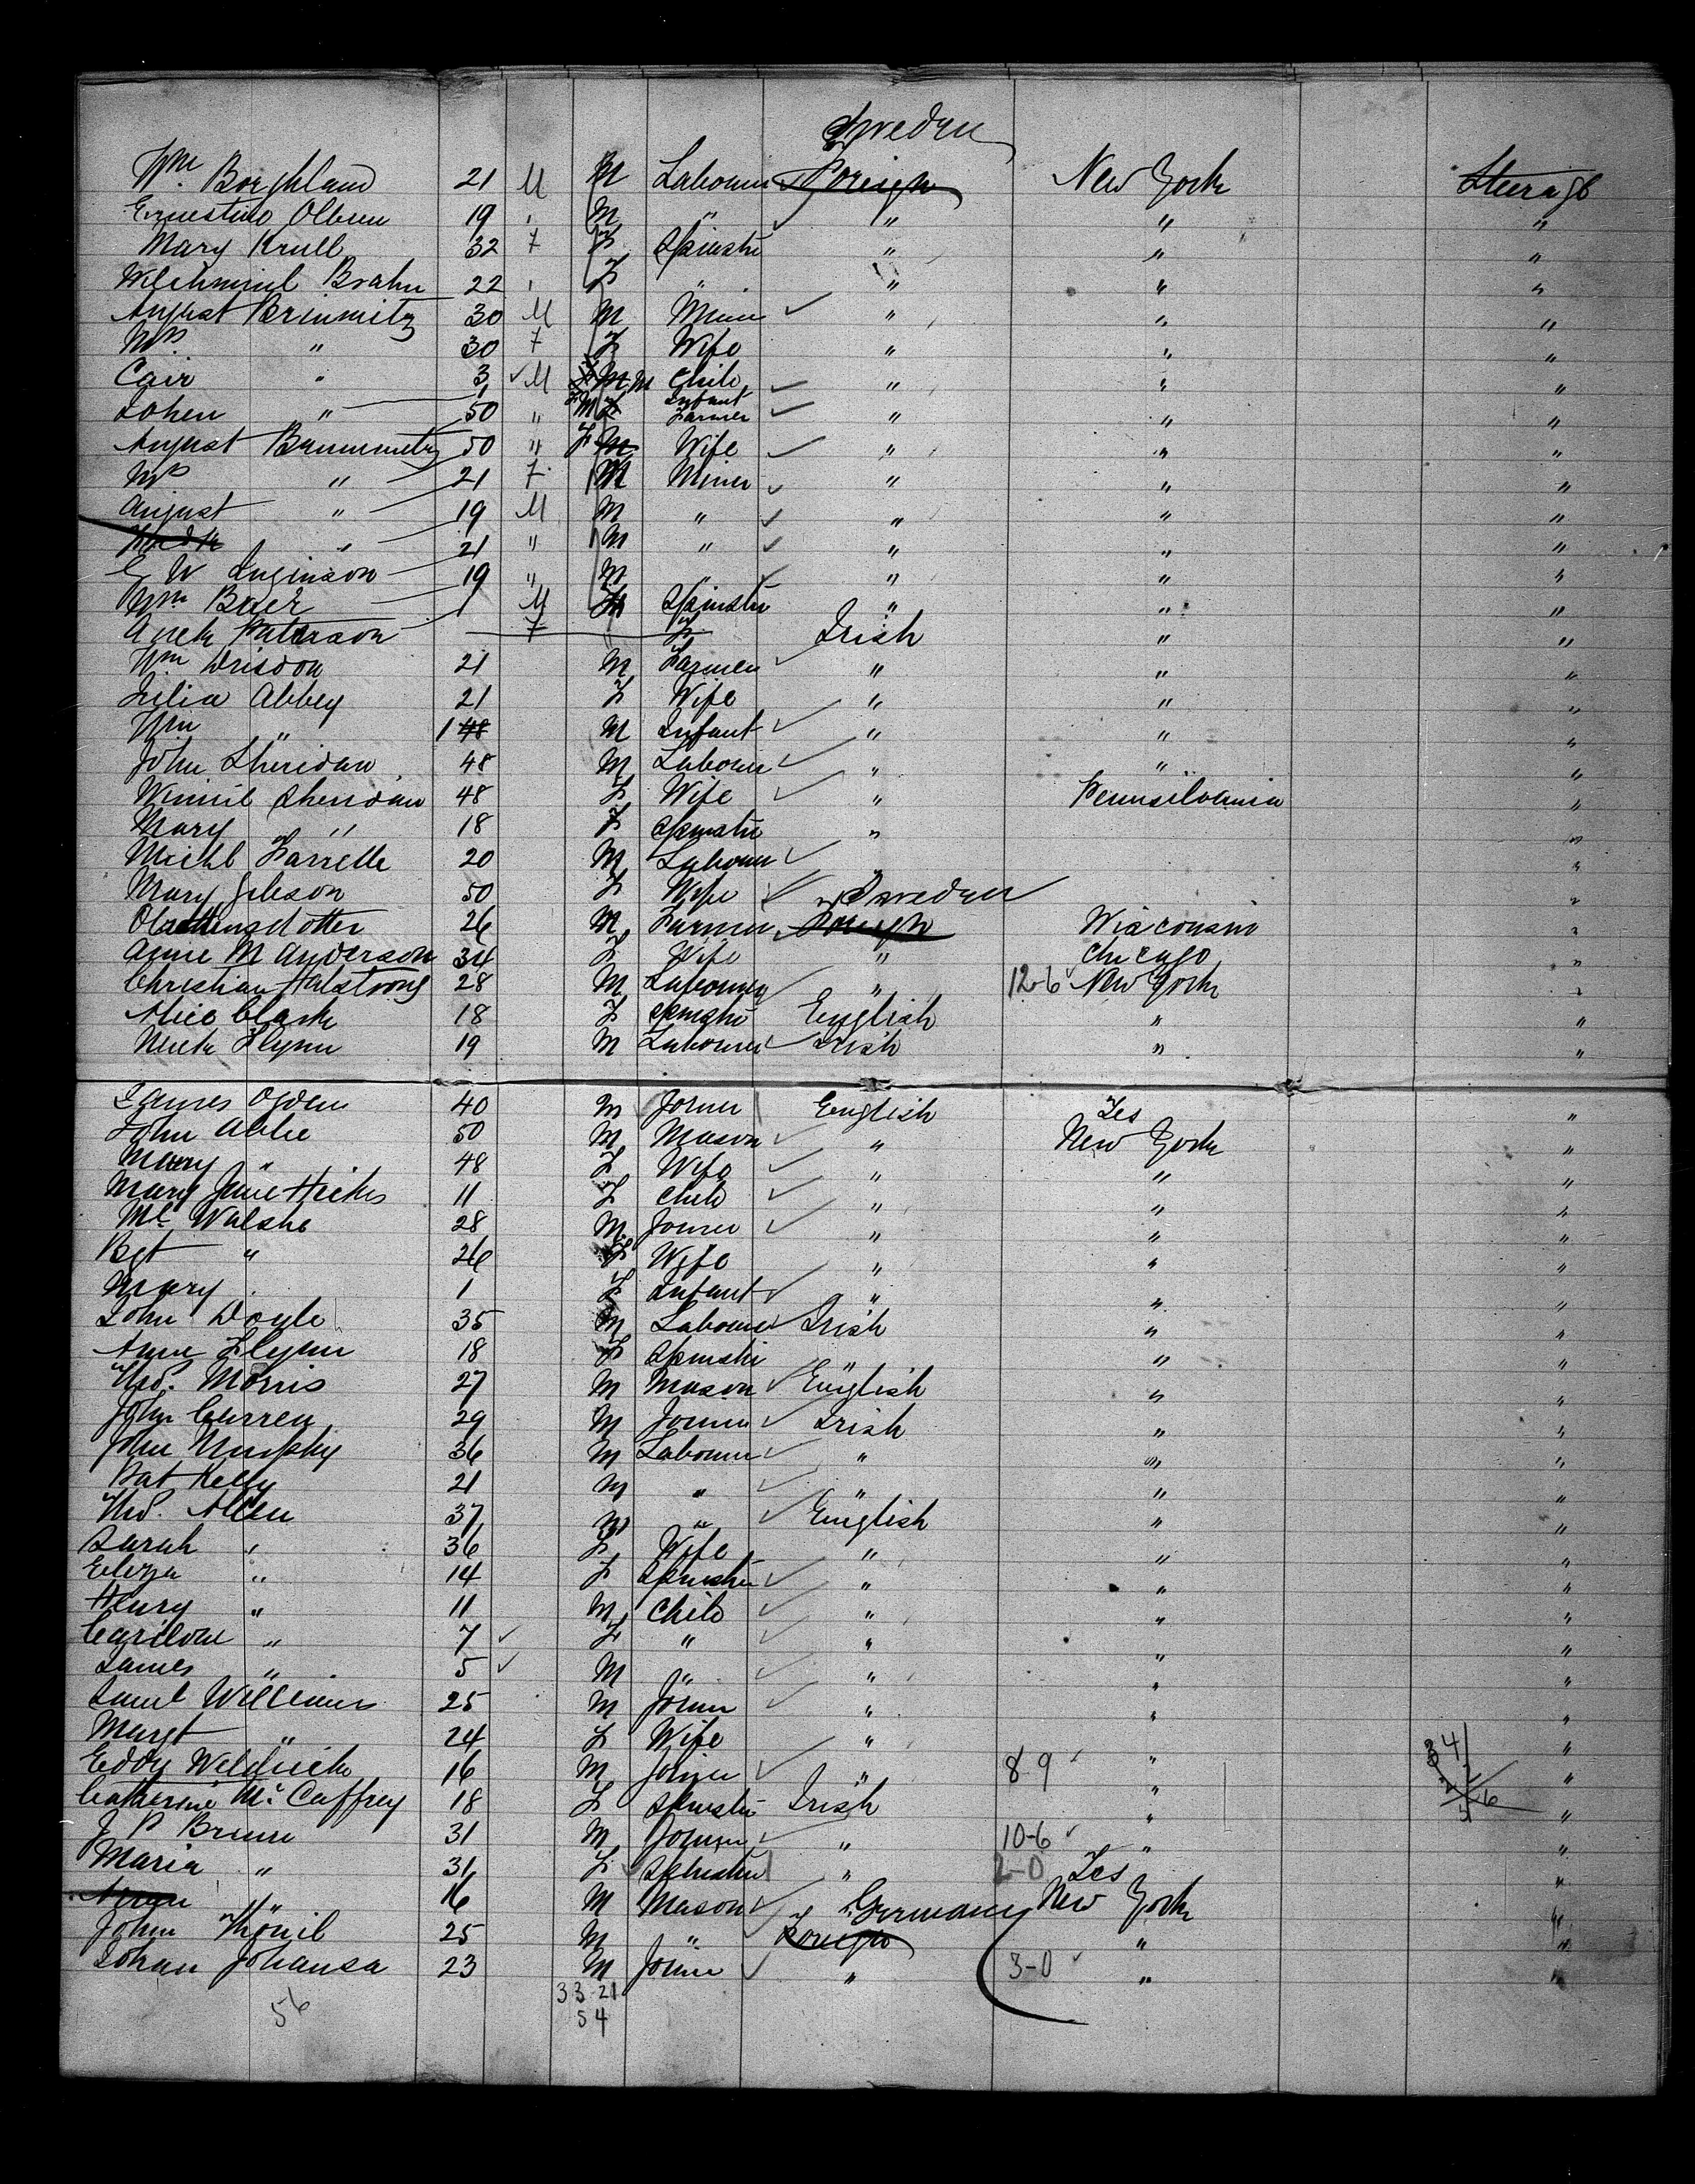 Sweden
Wm Borghland 21 M M Labourer Foreign New York Steerage
Ernestino Olbeen 19 " M " " " "
Mary Krull 32 F F Spinster " " "
Wilchminil Brahn 22 " F " " " "
August Brinmitz 30 M M Miner " " "
Mrs " 30 F F Wife " " "
Cair " 3 M M Child " " "
1 Infant
Johen " 50 " M Farmer " " "
August Brinmitz 50 " F M Wife " " "
Mrs " 21 F M Miner " " "
August " 19 M M " " " "
" 21 " M " " " "
E W Inginson 19 " M " " " "
Wm Baer 1 M F Spinster " " "
Paterson F F Irish " "
Wm Drisdon 21 M Farmer " " "
Lilia Abbey 21 F Wife " " "
Wm " 1 48 M Infant " " "
John Sheridan 48 M Labourer " " "
Winnil Sheridan 48 F Wife " Pennsilvania "
Mary " 18 F Spinster " "
Michl Farrelle 20 M Labourer " "
Mary Gibson 50 F Wife " Sweden "
26 M Farmer Foreign Wisconsin "
Anne M Anderson 34 F Wife " Chicago "
Christian Halstrong 28 M Labourer " 12-6 New York "
Alice Clark 18 F Spinster English " "
Flynn 19 M Labourer Irish " "
James Ogden 40 M Joiner English Tes "
John Abbe 50 M Mason " New York "
Mary " 48 F Wife " " "
Mary Jane Hickes 11 F Child " " "
Ml Walshe 28 M Joiner " " "
Bgt " 26 F Wife " " "
Mary " 1 F Infant " " "
John Doyle 35 M Labourer Irish " "
Anne Flynn 18 F Spinster " " "
Thos. Morris 27 M Mason English " "
John Curren 29 M Joiner Irish " "
John Murphy 36 M Labourer " " "
Pat Kelly 21 M " " " "
Thos. Allen 37 M " English " "
Sarah " 36 F Wife " " "
Eliza " 14 F Spinster " " "
Henry " 11 M Child " " "
Carilone " 7 F " " " "
James " 5 M " " " "
Saml Williams 25 M Joiner " " "
Margt " 24 F Wife " " "
Eddy 16 M Joiner " 8-9 " "
Catherine McCaffrey 18 F Spinster Irish " "
J P Brunn 31 M Joiner " 10-6 " "
Maria " 31 F Spinster " 2-0 Tes "
" 16 M Mason " Germany New York "
John Thonil 25 M " Foreign " "
Johan Johansa 23 M Joiner " 3-0 " "
33 21
56 54